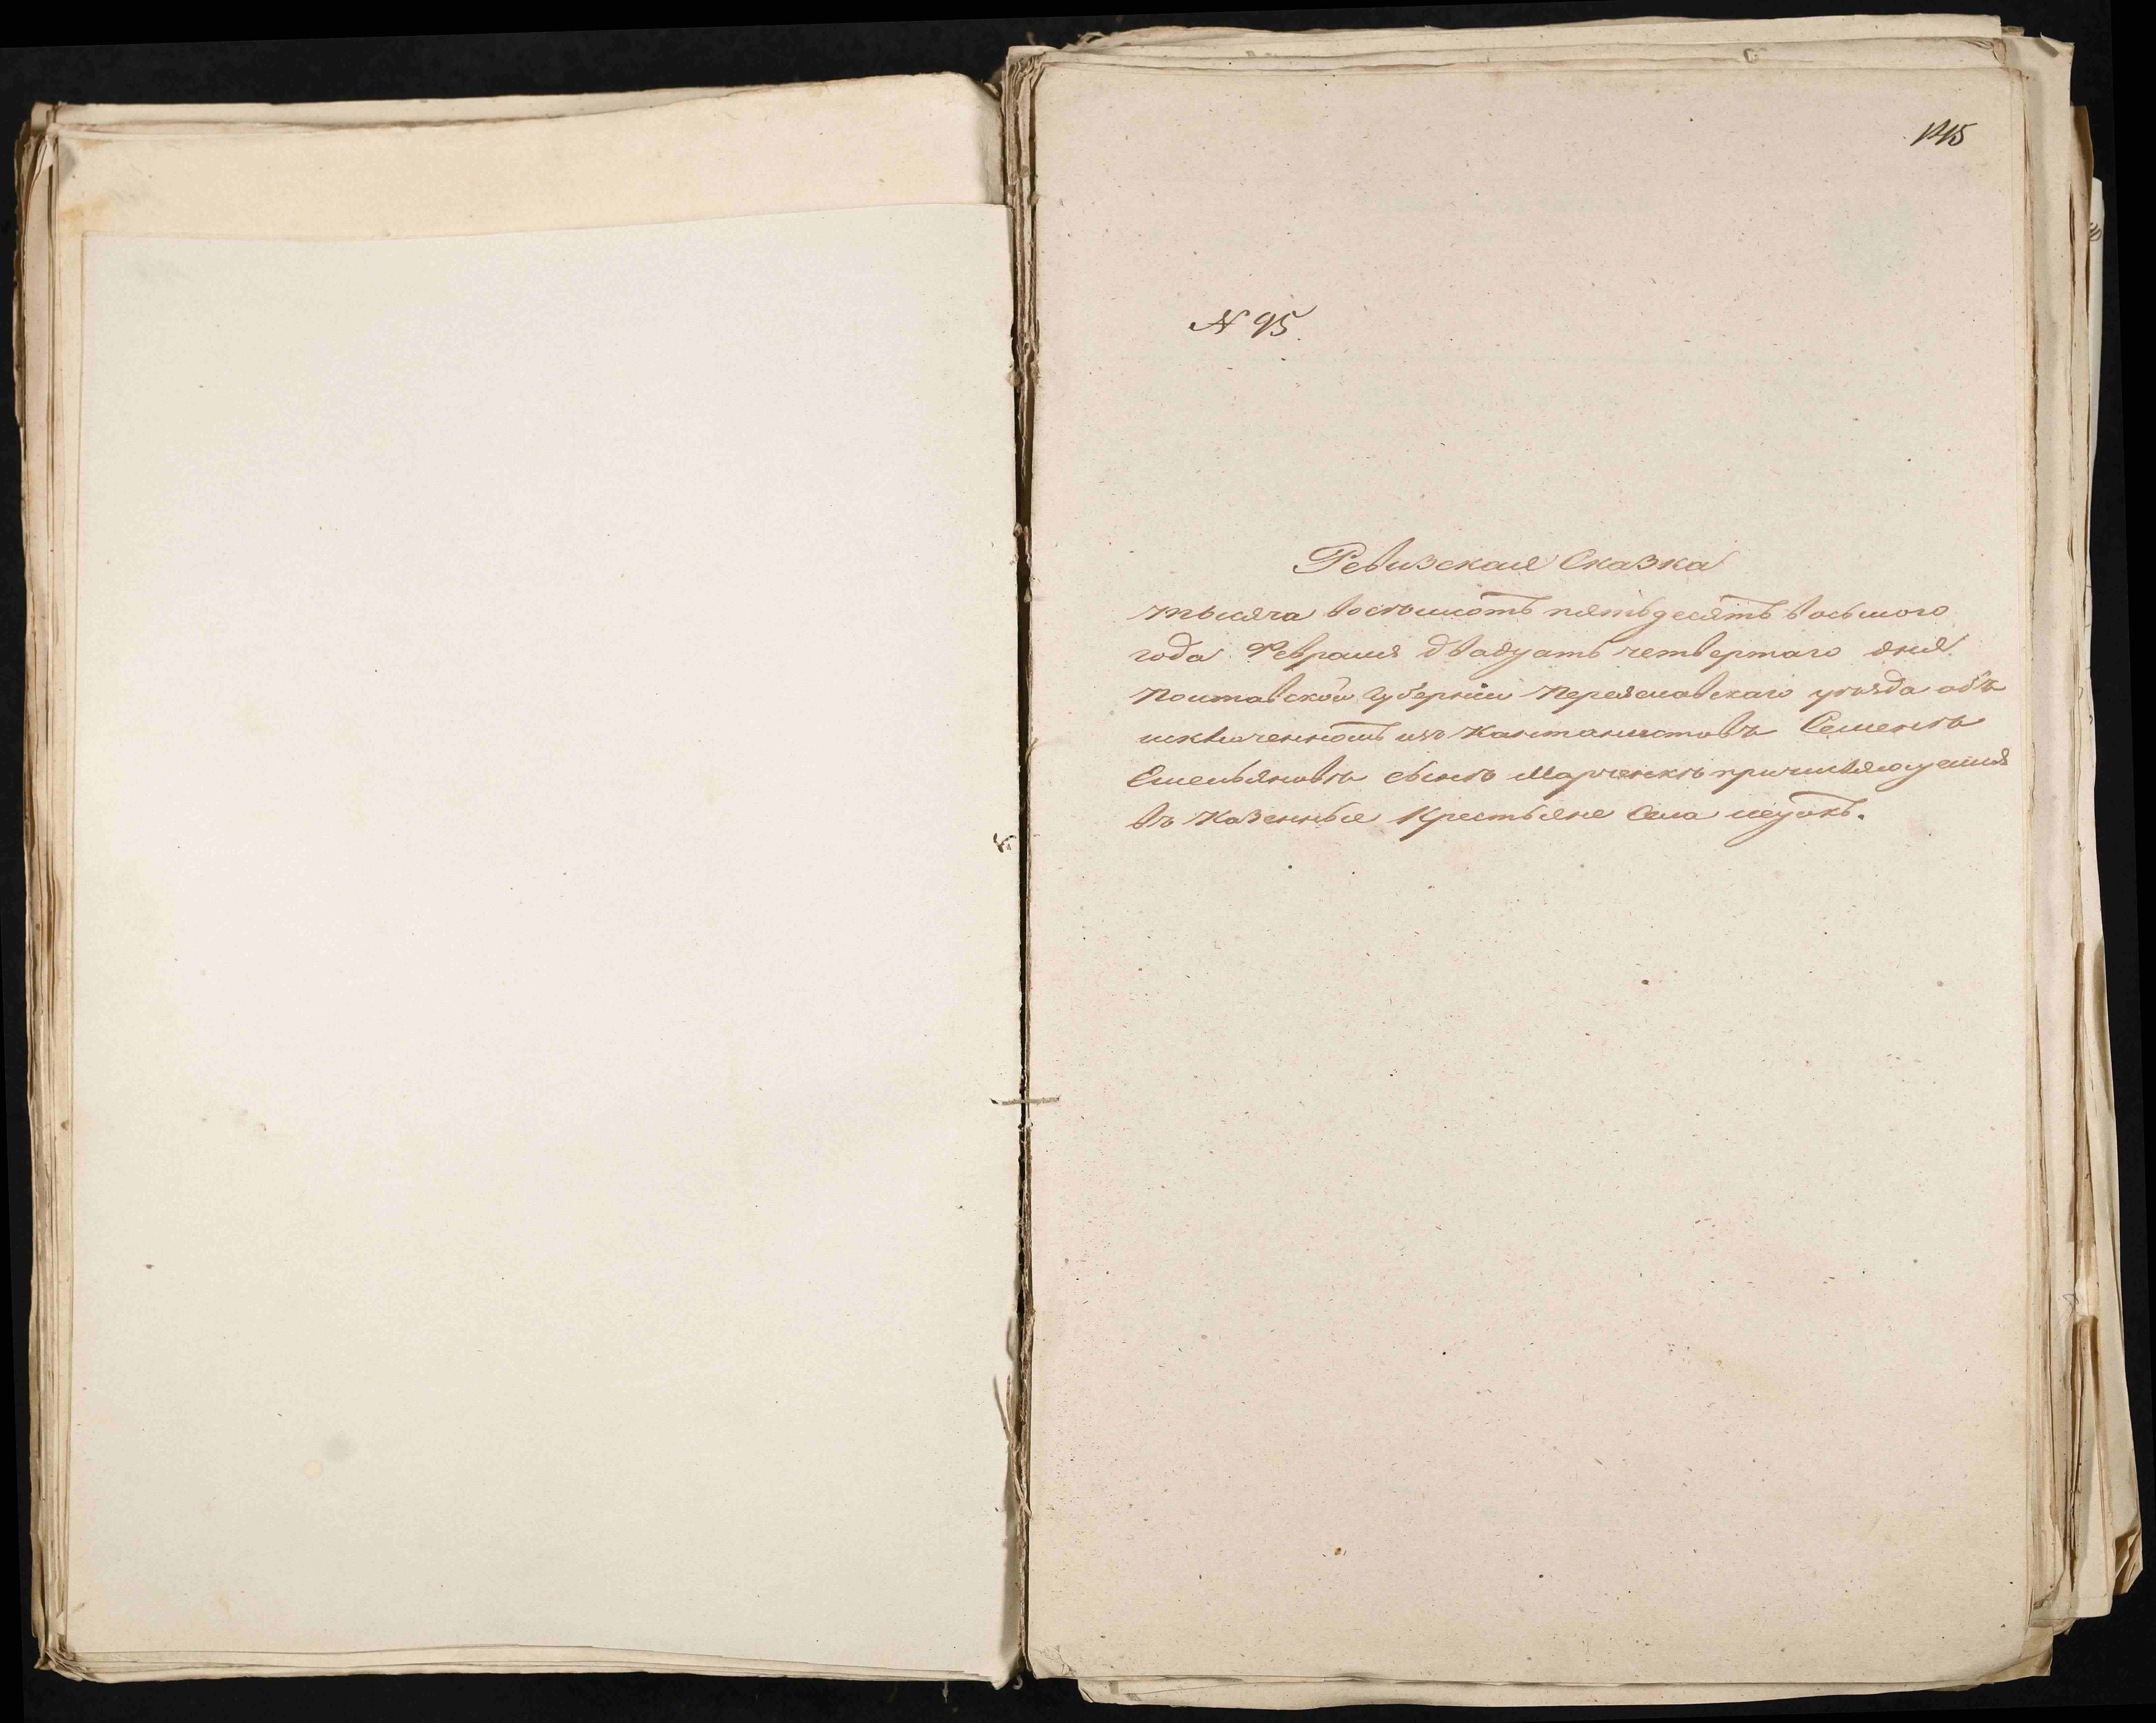 1415
N 95.
Ревизская Сказка
тысяча восъмсотъ пятьдесятъ восьмого
года Февраля двадцать четвертаго дня
Полтавской Губерніи Переяславскаго уезда объ
изъ Кантанистовъ Семенъ
Емельяновъ сынъ Марченкъ
въ Казенные Крестьяне Села